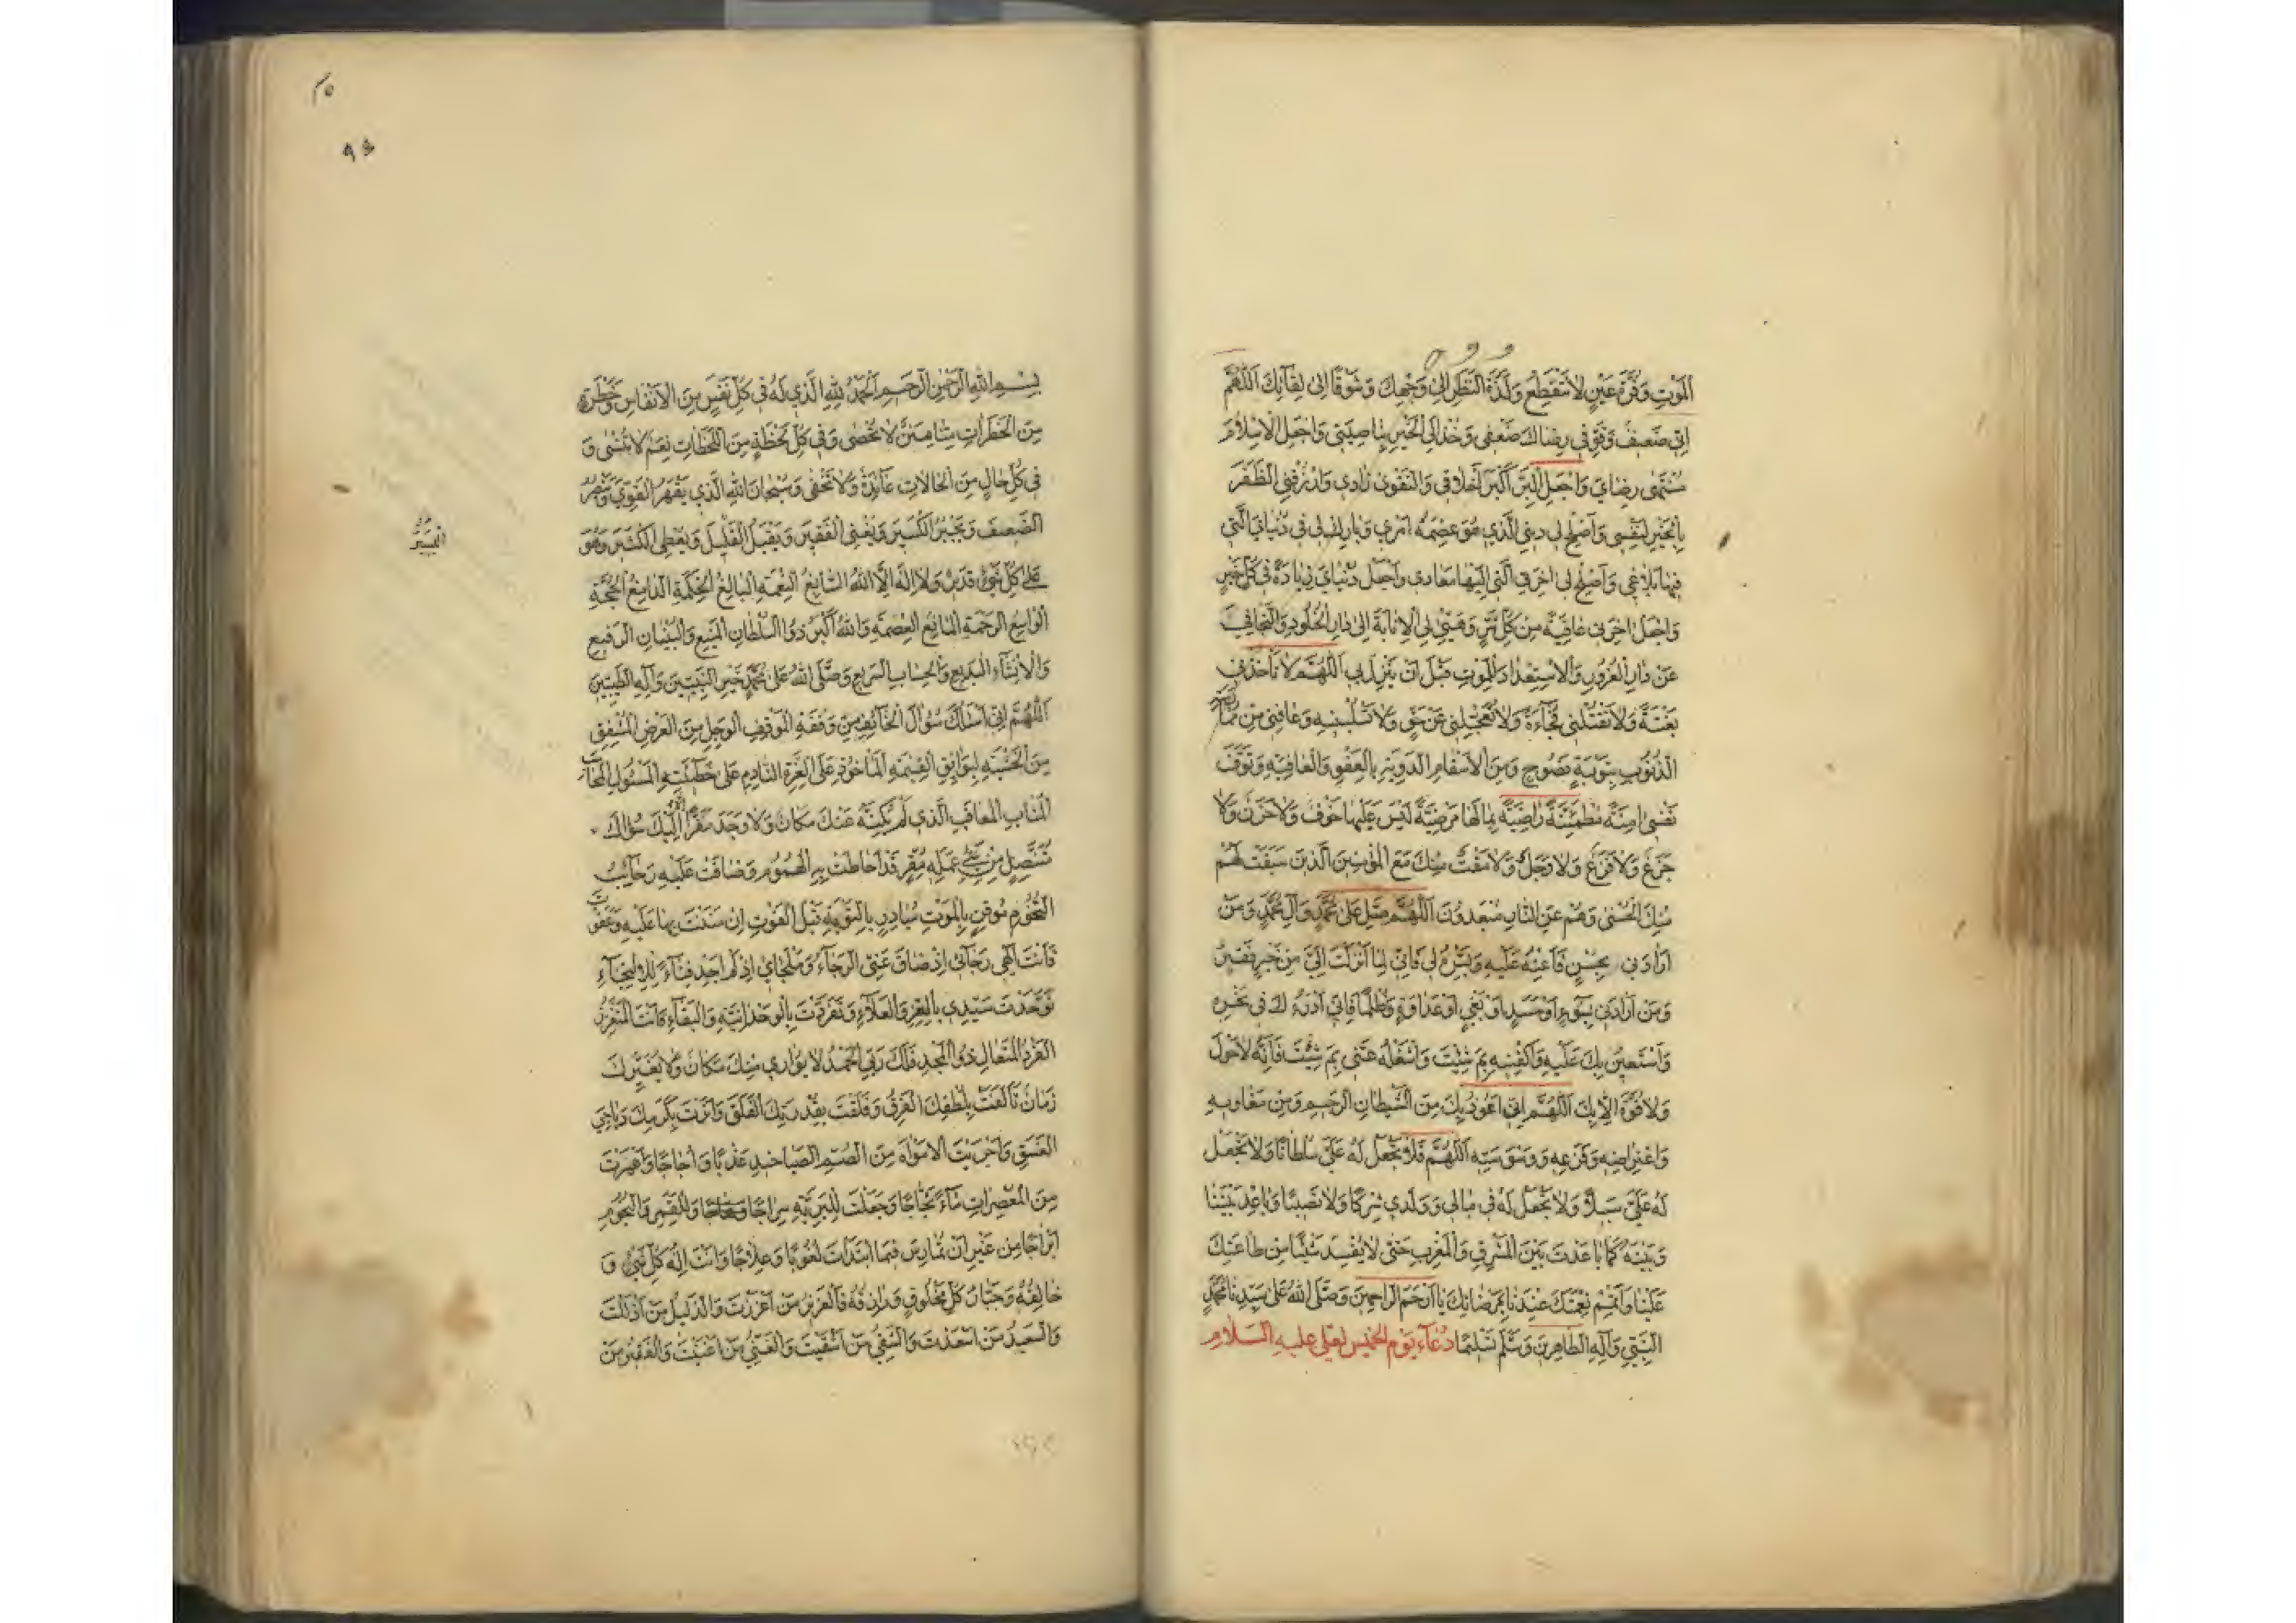 الْمَوْتِ وَقُرَّةَ عَيْنٍ لَا تَنْقَطِعُ وَلَذَّةَ النَّظَرِ إِلَى وَجْهِكَ وَشَوْقًا إِلَى لِقَائِكَ اَللّٰهُمَّ
إِنِّي ضَعِيفٌ فَقَوِّ فِي رِضَاكَ ضَعْفِي وَخُذْ إِلَى الْخَيْرِ بِنَاصِيَتِي وَاجْعَلِ الْإِسْلَامَ
مُنْتَهَى رِضَايَ وَاجْعَلِ الْبِرَّ أَكْبَرَ أَخْلَاقِي وَالتَّقْوَى زَادِي وَارْزُقْنِي الظَّفَرَ
بِالْخَيْرِ لِنَفْسِي وَأَصْلِحْ لِي دِينِيَ الَّذِي هُوَ عِصْمَةُ أَمْرِي وَبَارِكْ لِي فِي دُنْيَايَ الَّتِي
فِيهَا بَلَاغِي وَأَصْلِحْ لِي آخِرَتِيَ الَّتِي إِلَيْهَا مَعَادِي وَاجْعَلْ دُنْيَايَ زِيَادَةً فِي كُلِّ خَيْرٍ
وَاجْعَلْ آخِرَتِي عَافِيَةً مِنْ كُلِّ شَرٍّ وَهَيِّئْ لِيَ الْإِنَابَةَ إِلَى دَارِ الْخُلُودِ وَالتَّجَافِيَ
عَنْ دَارِ الْغُرُورِ وَالْاِسْتِعْدَادَ لِلْمَوْتِ قَبْلَ أَنْ يَنْزِلَ بِي اَللّٰهُمَّ لَا تَأْخُذْنِي
بَغْتَةً وَلَا تَقْتُلْنِي فُجَاءَةً وَلَا تُعَجِّلْنِي عَنْ حَقٍّ وَلَا تَسْلُبْنِيهِ وَعَافِنِي مِنْ مُمَارَسَةِ
الذُّنُوبِ بِتَوْبَةٍ نَصُوحٍ وَمِنَ الْأَسْقَامِ الدَّوِيَّةِ بِالْعَفْوِ وَالْعَافِيَةِ وَتَوَفَّ
نَفْسِي آمِنَةً مُطْمَئِنَّةً رَاضِيَةً بِمَا لَهَا مَرْضِيَّةً لَيْسَ عَلَيْهَا خَوْفٌ وَلَا حَزَنٌ وَلَا
جَزَعٌ وَلَا فَزَعٌ وَلَا وَجَلٌ وَلَا مَقْتٌ مِنْكَ مَعَ الْمُؤْمِنِينَ الَّذِينَ سَبَقَتْ لَهُمْ
مِنْكَ الْحُسْنَى وَهُمْ عَنِ النَّارِ مُبْعَدُونَ اَللّٰهُمَّ صَلِّ عَلَى مُحَمَّدٍ وَآلِ مُحَمَّدٍ وَمَنْ
أَرَادَنِي بِحُسْنٍ فَأَعِنْهُ عَلَيْهِ وَيَسِّرْهُ لِي فَإِنِّي لِمَا أَنْزَلْتَ إِلَيَّ مِنْ خَيْرٍ فَقِيرٌ
وَمَنْ أَرَادَنِي بِسُوءٍ أَوْ حَسَدٍ أَوْ بَغْيٍ أَوْ عَدَاوَةٍ وَظُلْمًا فَإِنِّي أَدْرَءُ لَكَ فِي نَحْرِهِ
وَأَسْتَعِينُ بِكَ عَلَيْهِ فَاكْفِنِيهِ بِمَ شِئْتَ وَاشْغَلْهُ عَنِّي بِمَ شِئْتَ فَإِنَّهُ لَا حَوْلَ
وَلَا قُوَّةَ إِلَّا بِكَ اَللّٰهُمَّ إِنِّي أَعُوذُ بِكَ مِنَ الشَّيْطَانِ الرَّجِيمِ وَمِنْ مَغَاوِيهِ
وَاعْتِرَاضِهِ وَفَزَعِهِ وَوَسْوَسَتِهِ اَللّٰهُمَّ فَلَا تَجْعَلْ لَهُ عَلَيَّ سُلْطَانًا وَلَا تَجْعَلْ
لَهُ عَلَيَّ سَبِيلًا وَلَا تَجْعَلْ لَهُ فِي مَالِي وَوَلَدِي شِرْكًا وَلَا نَصِيبًا وَبَاعِدْ بَيْنَنَا
وَبَيْنَهُ كَمَا بَاعَدْتَ بَيْنَ الْمَشْرِقِ وَالْمَغْرِبِ حَتَّى لَا يُفْسِدَ شَيْئًا مِنْ طَاعَتِكَ
عَلَيْنَا وَأَتْمِمْ نِعْمَتَكَ عِنْدَنَا بِمَرْضَاتِكَ يَا أَرْحَمَ الرَّاحِمِينَ وَصَلَّى اللهُ عَلَى سَيِّدِنَا مُحَمَّدٍ
النَّبِيِّ وَآلِهِ الطَّاهِرِينَ وَسَلَّمَ تَسْلِيمًا دُعَاءُ يَوْمِ الْخَمِيسِ لِعَلِيٍّ عَلَيْهِ السَّلَامُ
٩٤
بِسْمِ اللهِ الرَّحْمٰنِ الرَّحِيمِ اَلْحَمْدُ لِلّٰهِ الَّذِي لَهُ فِي كُلِّ نَفَسٍ مِنَ الْأَنْفَاسِ وَخَطْرَةٍ
مِنَ الْخَطَرَاتِ مِنَّا مِنَنٌ لَا تُحْصَى وَفِي كُلِّ لَحْظَةٍ مِنَ اللَّحَظَاتِ نِعَمٌ لَا تُنْسَى وَ
فِي كُلِّ حَالٍ مِنَ الْحَالَاتِ عَائِدَةٌ وَلَا تَخْفَى وَسُبْحَانَ اللهِ الَّذِي يَقْهَرُ الْقَوِيَّ وَيَنْصُرُ
الضَّعِيفَ وَيَجْبُرُ الْكَسِيرَ وَيُغْنِي الْفَقِيرَ وَيَقْبَلُ الْقَلِيلَ وَيُعْطِي الْكَثِيرَ وَهُوَ
عَلَى كُلِّ شَيْءٍ قَدِيرٌ وَلَا إِلٰهَ إِلَّا اللهُ السَّابِغُ النِّعْمَةِ الْبَالِغُ الْحِكْمَةِ الدَّامِغُ الْحُجَّةِ
الْوَاسِعُ الرَّحْمَةِ الْمَانِعُ الْعِصْمَةِ وَاللهُ أَكْبَرُ ذُو السُّلْطَانِ الْمَنِيعِ وَالْبُنْيَانِ الرَّفِيعِ
وَالْإِنْشَاءِ الْبَدِيعِ وَالْحِسَابِ السَّرِيعِ وَصَلَّى اللهُ عَلَى مُحَمَّدٍ خَيْرِ النَّبِيِّينَ وَآلِهِ الطَّيِّبِينَ
اَللّٰهُمَّ إِنِّي أَسْئَلُكَ سُؤَالَ الْخَائِفِ مِنْ وَقْفَةِ الْمَوْقِفِ الْوَجِلِ مِنَ الْعَرْضِ الْمُشْفِقِ
مِنَ الْخَشْيَةِ لِبَوَائِقِ الْقِيٰمَةِ الْمَأْخُوذِ عَلَى الْغِرَّةِ النَّادِمِ عَلَى خَطِيئَتِهِ الْمَسْئُولِ الْمُحَاسَبِ
الْمُثَابِ الْمُعَاقَبِ الَّذِي لَمْ يُكِنَّهُ عَنْكَ مَكَانٌ وَلَا وَجَدَ مَفَرًّا إِلَّا إِلَيْكَ سُؤَالَ
مُتَنَصِّلٍ مِنْ سَيِّئِ عَمَلِهِ مُقِرٍّ قَدْ أَحَاطَتْ بِهِ الْهُمُومُ وَضَاقَتْ عَلَيْهِ رَحَائِبُ
التُّخُومِ مُوقِنٍ بِالْمَوْتِ مُبَادِرٍ بِالتَّوْبَةِ قَبْلَ الْفَوْتِ إِنْ مَنَنْتَ بِهَا عَلَيْهِ وَعَفَوْتَ
فَأَنْتَ إِلٰهِي رَجَائِي إِذْ ضَاقَ عَنِّي الرَّجَاءُ وَمَلْجَئِي إِذْ لَمْ أَجِدْ فِنَاءً لِلْاِلْتِجَاءِ
تَوَحَّدْتَ سَيِّدِي بِالْعِزِّ وَالْعَلَاءِ وَتَفَرَّدْتَ بِالْوَحْدَانِيَّةِ وَالْبَقَاءِ فَأَنْتَ الْمُتَعَزِّزُ
الْفَرْدُ الْمُتَعَالِ ذُو الْمَجْدِ فَلَكَ رَبِّي الْحَمْدُ لَا يُوَارِي مِنْكَ مَكَانٌ وَلَا يُغَيِّرُكَ
زَمَانٌ تَأَلَّفْتَ بِلُطْفِكَ الْفِرَقَ وَفَلَقْتَ بِقُدْرَتِكَ الْفَلَقَ وَأَنَرْتَ بِكَرَمِكَ دَيَاجِيَ
الْغَسَقِ وَأَجْرَيْتَ الْأَمْوَاهَ مِنَ الصُّمِّ الصَّيَاخِيدِ عَذْبًا وَأُجَاجًا وَأَهْمَرْتَ
مِنَ الْمُعْصِرَاتِ مَاءً ثَجَّاجًا وَجَعَلْتَ لِلْبَرِيَّةِ سِرَاجًا وَهَّاجًا وَلِلْقَمَرِ وَالنُّجُومِ
أَبْرَاجًا مِنْ غَيْرِ أَنْ تُمَارِسَ فِيمَا ابْتَدَأْتَ لُغُوبًا وَعِلَاجًا وَأَنْتَ إِلٰهُ كُلِّ شَيْءٍ وَ
خَالِقُهُ وَجَبَّارُ كُلِّ مَخْلُوقٍ وَرَازِقُهُ فَالْعَزِيزُ مَنْ أَعْزَزْتَ وَالذَّلِيلُ مَنْ أَذْلَلْتَ
وَالسَّعِيدُ مَنْ أَسْعَدْتَ وَالشَّقِيُّ مَنْ أَشْقَيْتَ وَالْغَنِيُّ مَنْ أَغْنَيْتَ وَالْفَقِيرُ مَنْ